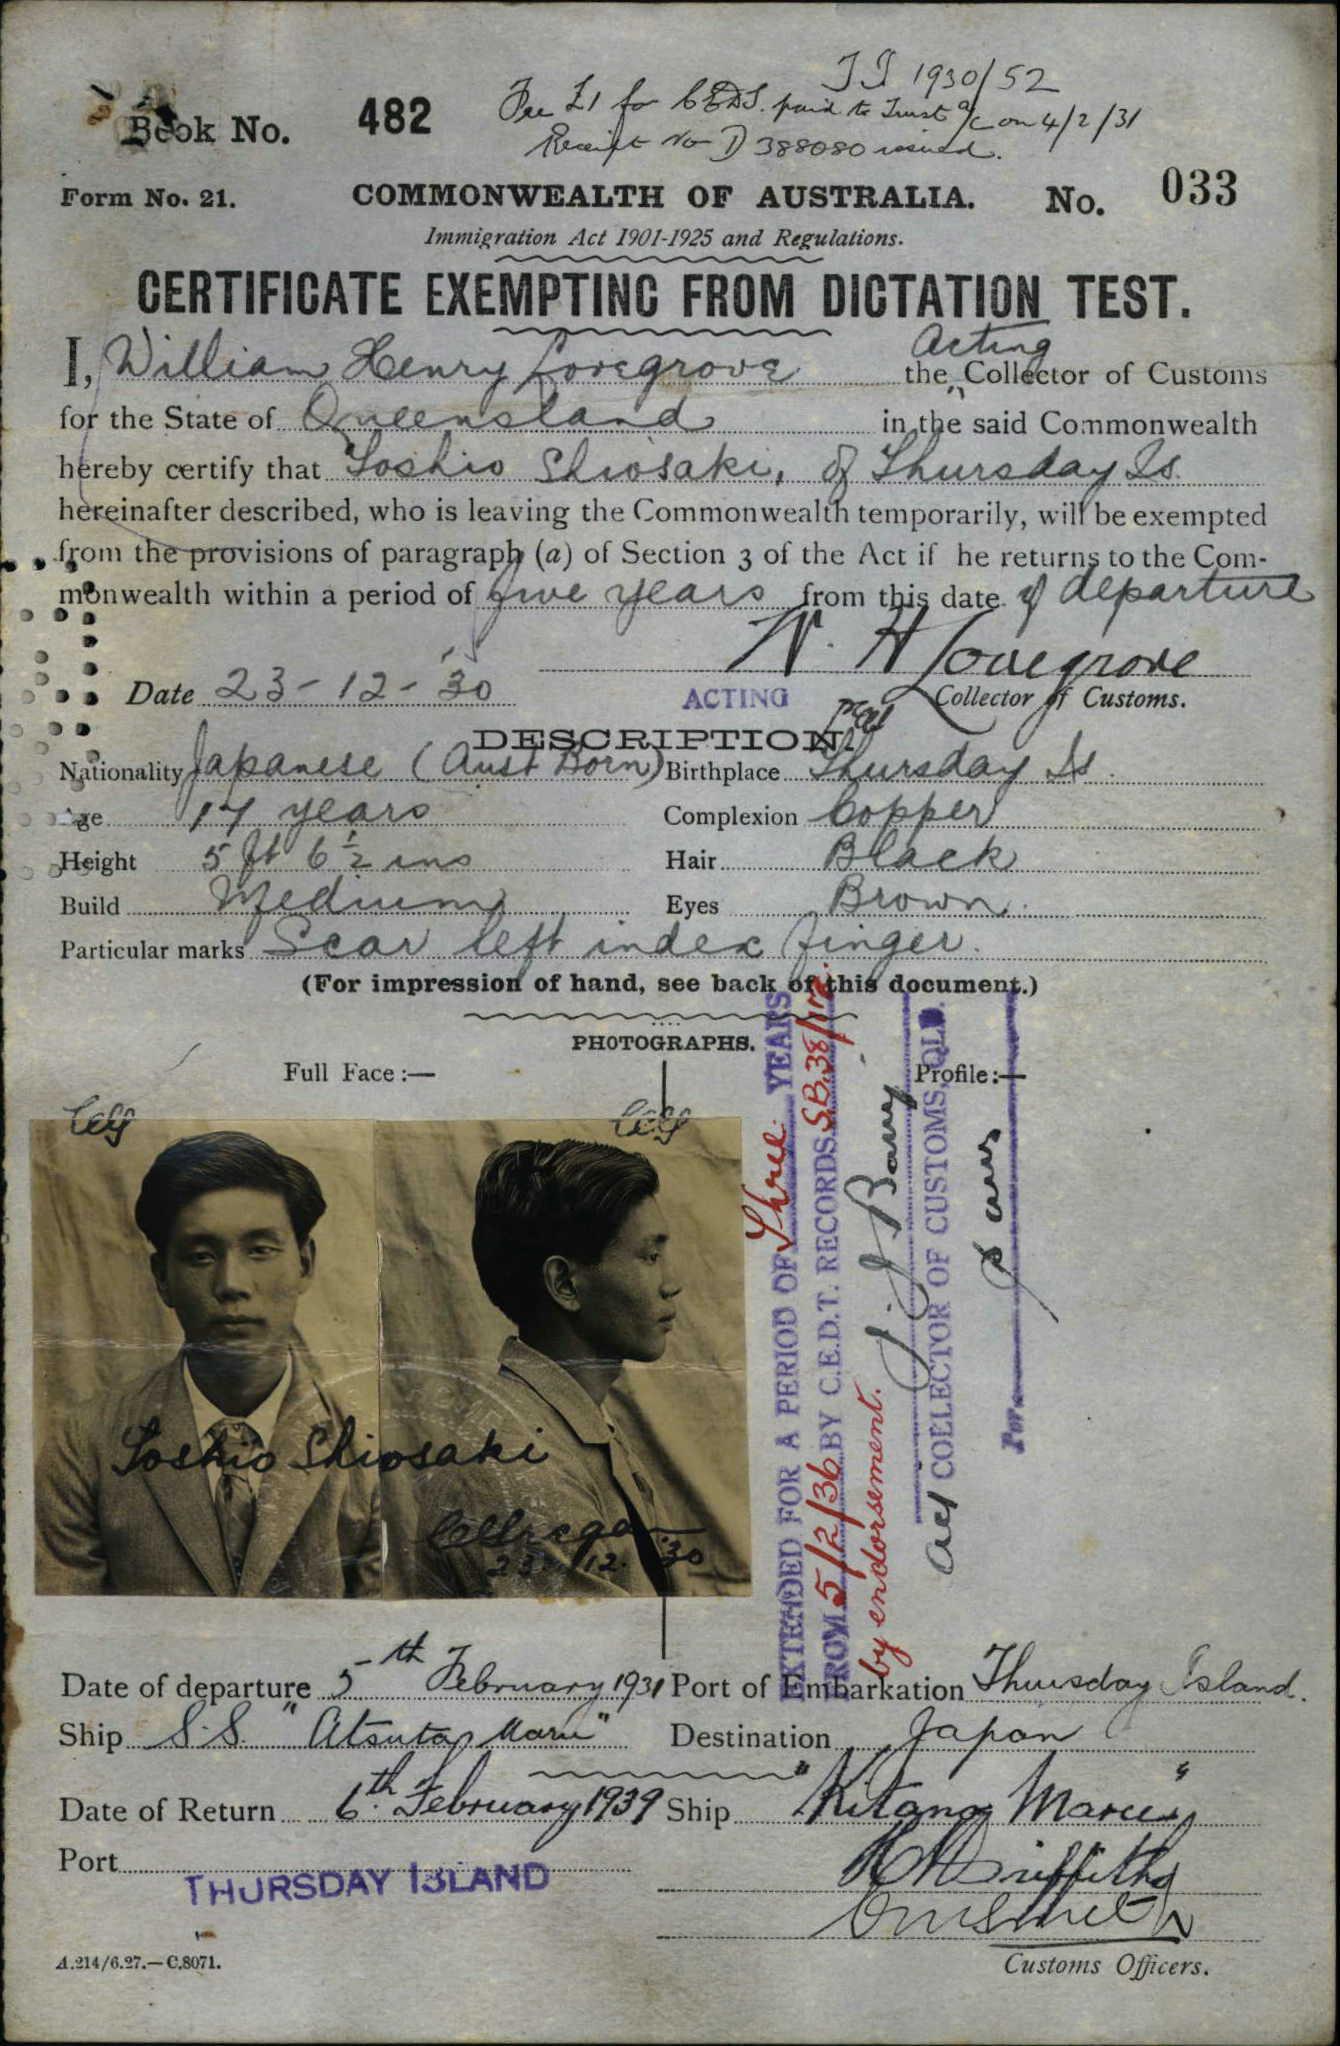 TI 1930/52
Book No. 482
Fee £1 for CEDT. paid to Trust a/c on 4/2/31
Receipt No D 388080 issued.
Form No. 21. COMMONWEALTH OF AUSTRALIA. No. 033
Immigration Act 1901-1925 and Regulations.
CERTIFICATE EXEMPTING FROM DICTATION TEST.
Acting
I, William Henry Lovegrove the Collector of Customs
for the State of Queensland in the said Commonwealth
hereby certify that Toshio Shiosaki, of Thursday Is.
hereinafter described, who is leaving the Commonwealth temporarily, will be exempted
from the provisions of paragraph (a) of Section 3 of the Act if he returns to the Com-
monwealth within a period of five years from this date of departure
W. H Lovegrove
Date 23-12-30 ACTING Collector of Customs.
DESCRIPTION.
Nationality Japanese (Aust Born) Birthplace Thursday Is.
Age 17 years Complexion Copper
Height 5 ft 6 1/2 ins Hair Black
Build Medium Eyes Brown.
Particular marks Scar left index finger.
(For impression of hand, see back of this document.)
PHOTOGRAPHS.
Full Face:— Profile:—
EXTENDED FOR A PERIOD OF Three YEARS
FROM 5/2/36 BY C.E.D.T. RECORDS
by endorsement.
Act COLLECTOR OF CUSTOMS, QLD.
Per
Toshio Shiosaki
23.12.30
Date of departure 5th February 1931 Port of Embarkation Thursday Island.
Ship S.S. "Atsuta Maru" Destination Japan
Date of Return 6th February 1939 Ship "Kitano Maru"
Port THURSDAY ISLAND
Customs Officers.
A.214/6.27.—C.8071.